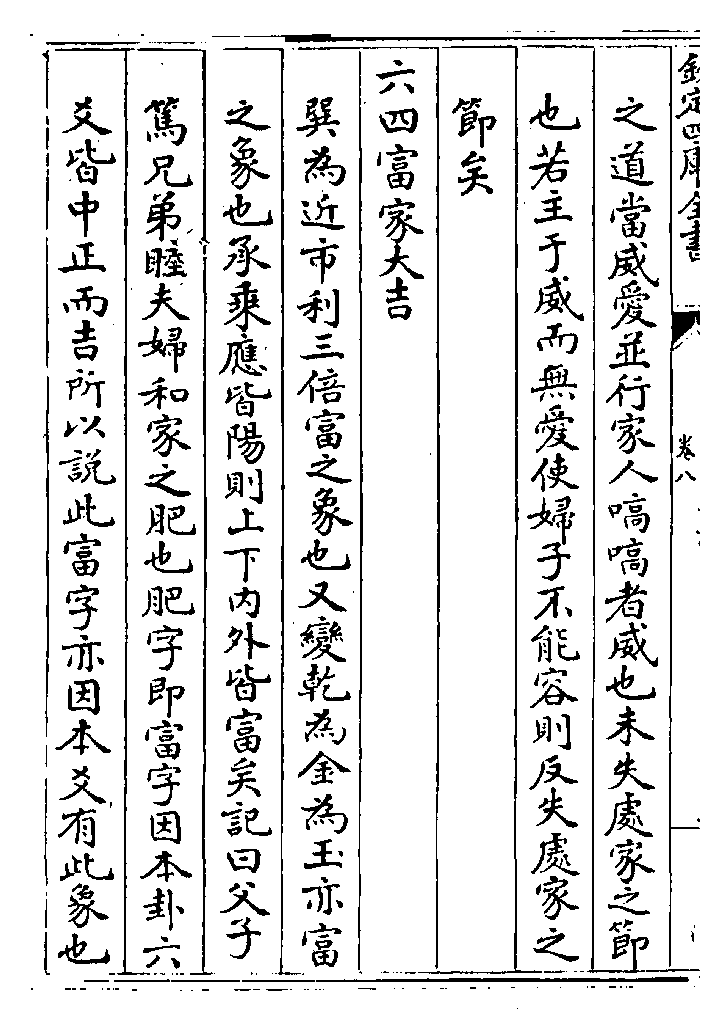 欽定四庫全書
卷八
之道當威愛並行家人嗃嗃者威也未失處家之節
也若主于威而無愛使婦子不能容則反失處家之
節矣
六四富家大吉
巽為近市利三倍富之象也又變乾為金為玉亦富
之象也承乘應皆陽則上下内外皆富矣記曰父子
篤兄弟睦夫婦和家之肥也肥字即富字因本卦六
爻皆中正而吉所以說此富字亦因本爻有此象也